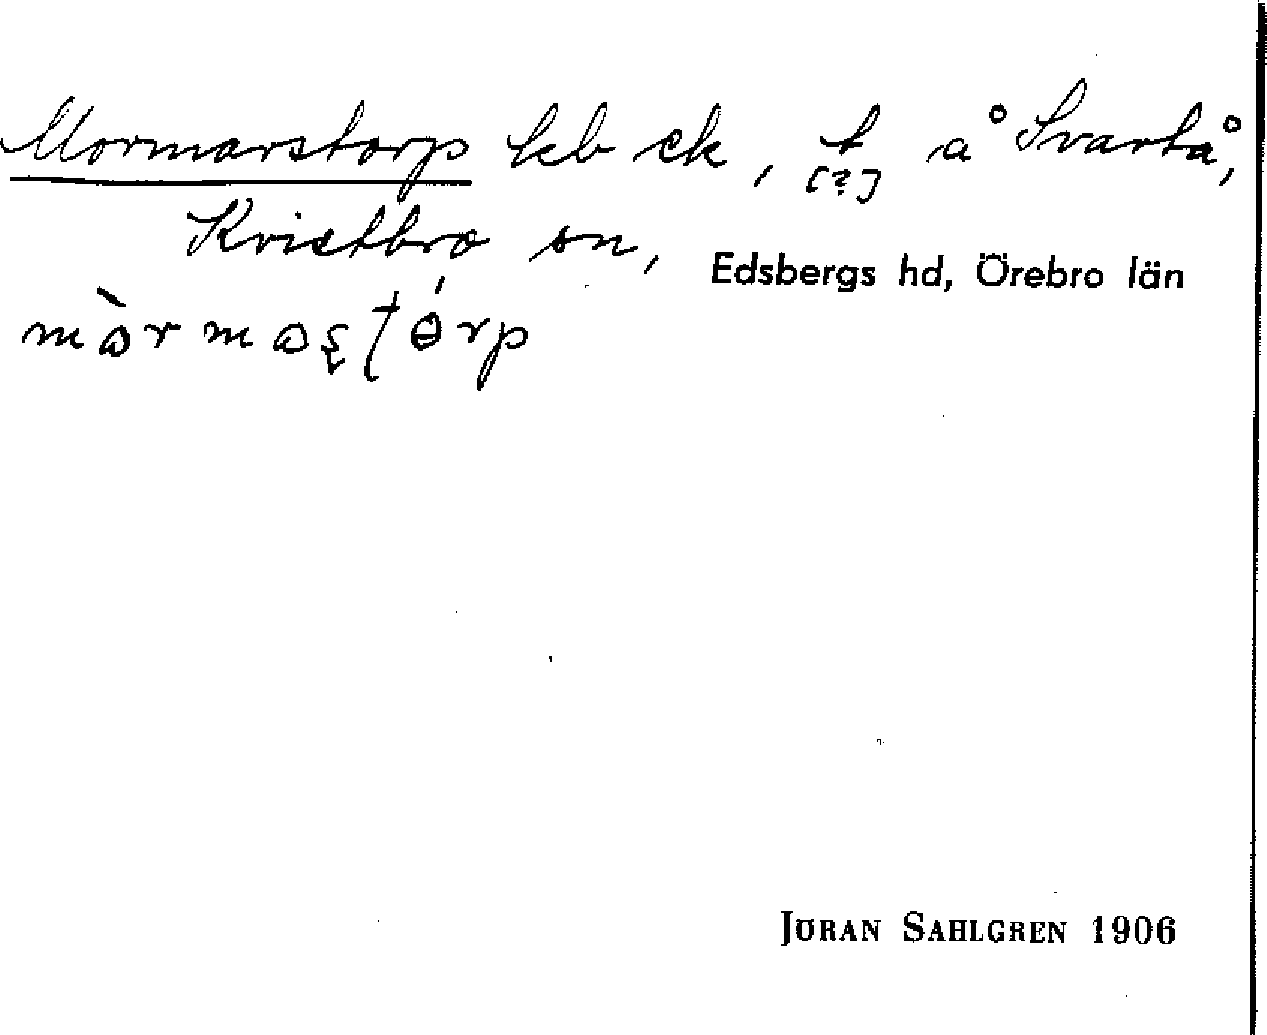 Mormarstorp kb ck, t å Svartå,
[?]
Kvistbro sn, Edsbergs hd, Örebro län
JÖRAN SAHLGREN 1906